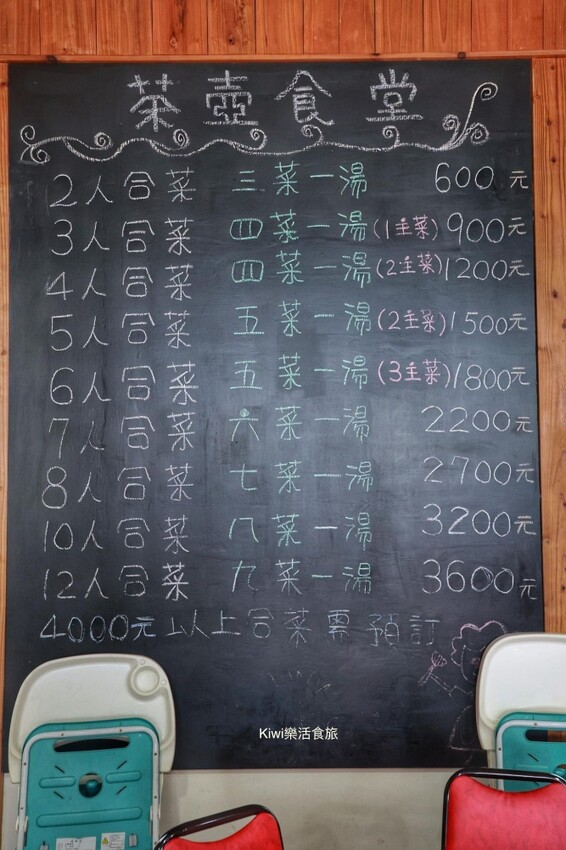 茶壺食堂
2人合菜 三菜一湯 600元
3人合菜 四菜一湯(1主菜)900元
4人合菜 四菜一湯(2主菜)1200元
5人合菜 五菜一湯(2主菜)1500元
6人合菜 五菜一湯(3主菜)1800元
7人合菜 六菜一湯 2200元
8人合菜 七菜一湯 2700元
10人合菜 八菜一湯 3200元
12人合菜 九菜一湯 3600元
4000元以上合菜需預訂
Kiwi樂活食旅